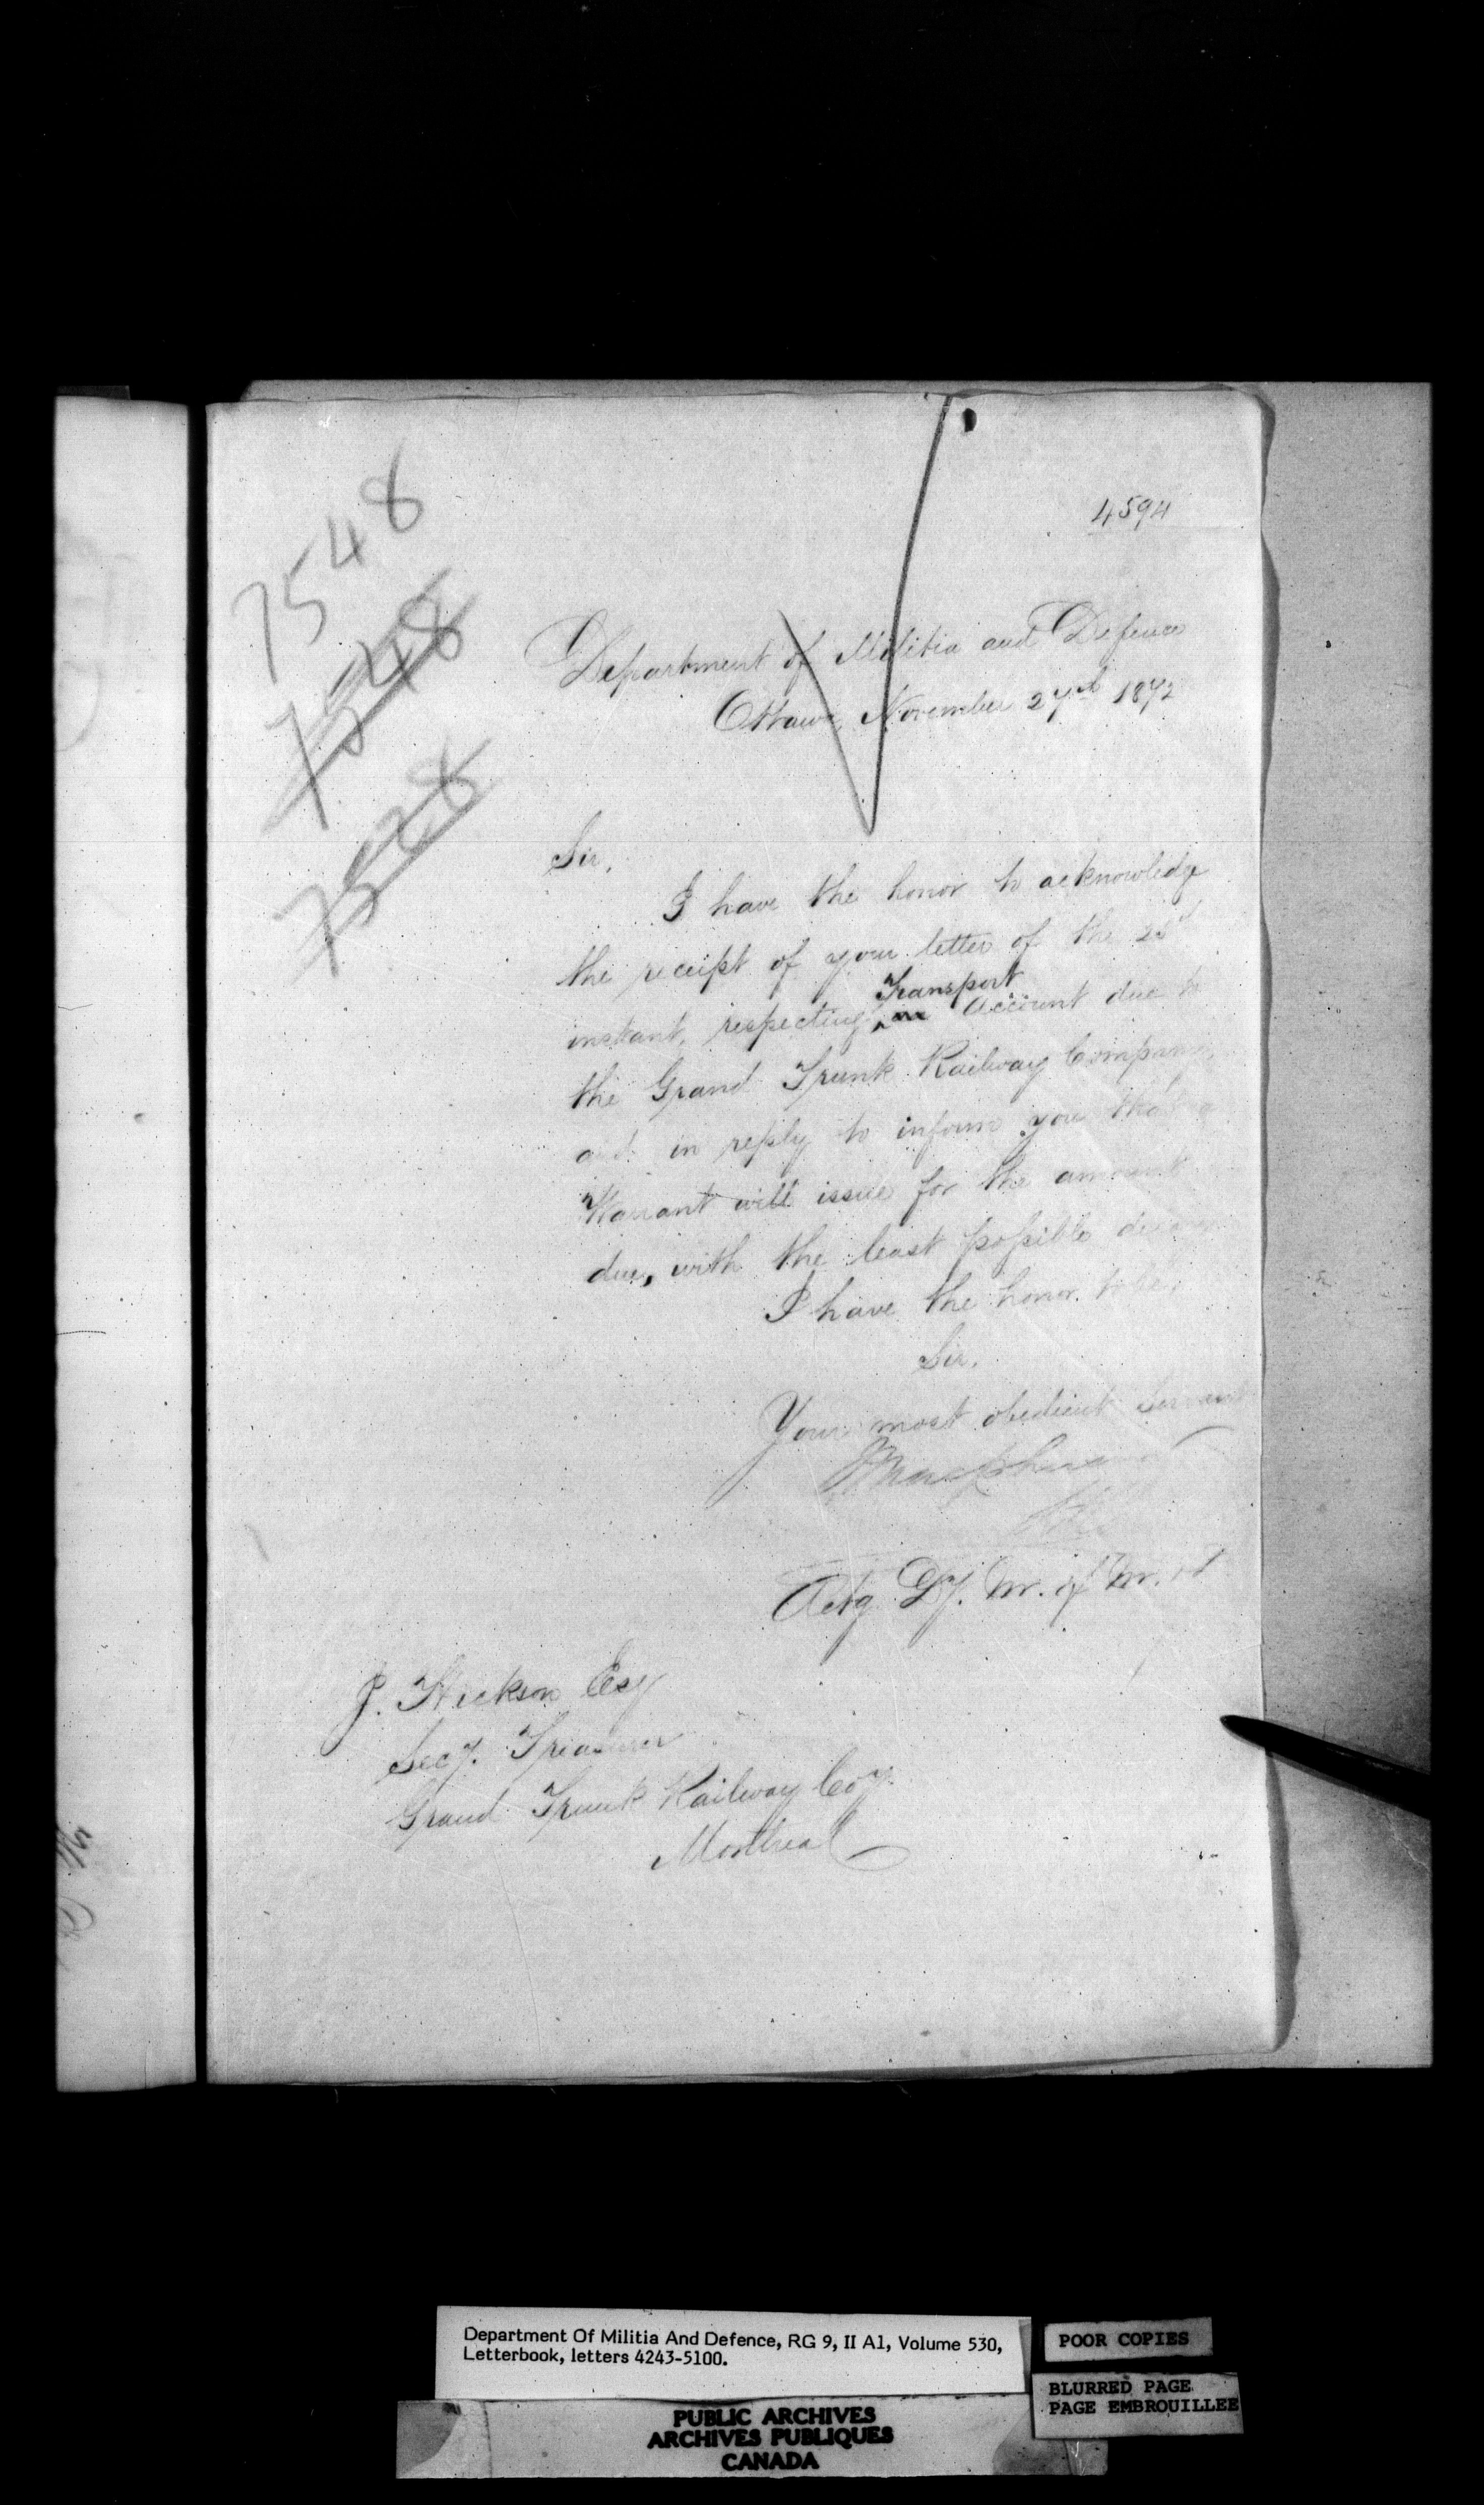 4594
7548
7548
7528
Department of Militia and Defence
Ottawa, November 27th 1872
Sir,
I have the honor to acknowledge
the receipt of your letter of the
instant, respecting Transport an Account due to
the Grand Trunk Railway Company,
and in reply to inform you that a
Warrant will issue for the amount
due, with the least possible
I have the honor to be,
Sir,
Your most obedient Servant
Actg Dy. M. of M. &
J. Hickson Esq
Secy. Treasurer
Grand Trunk Railway Coy.
Montreal
Department Of Militia And Defence, RG 9, II A1, Volume 530,
Letterbook, letters 4243-5100.
POOR COPIES
BLURRED PAGE
PAGE EMBROUILLEE
PUBLIC ARCHIVES
ARCHIVES PUBLIQUES
CANADA